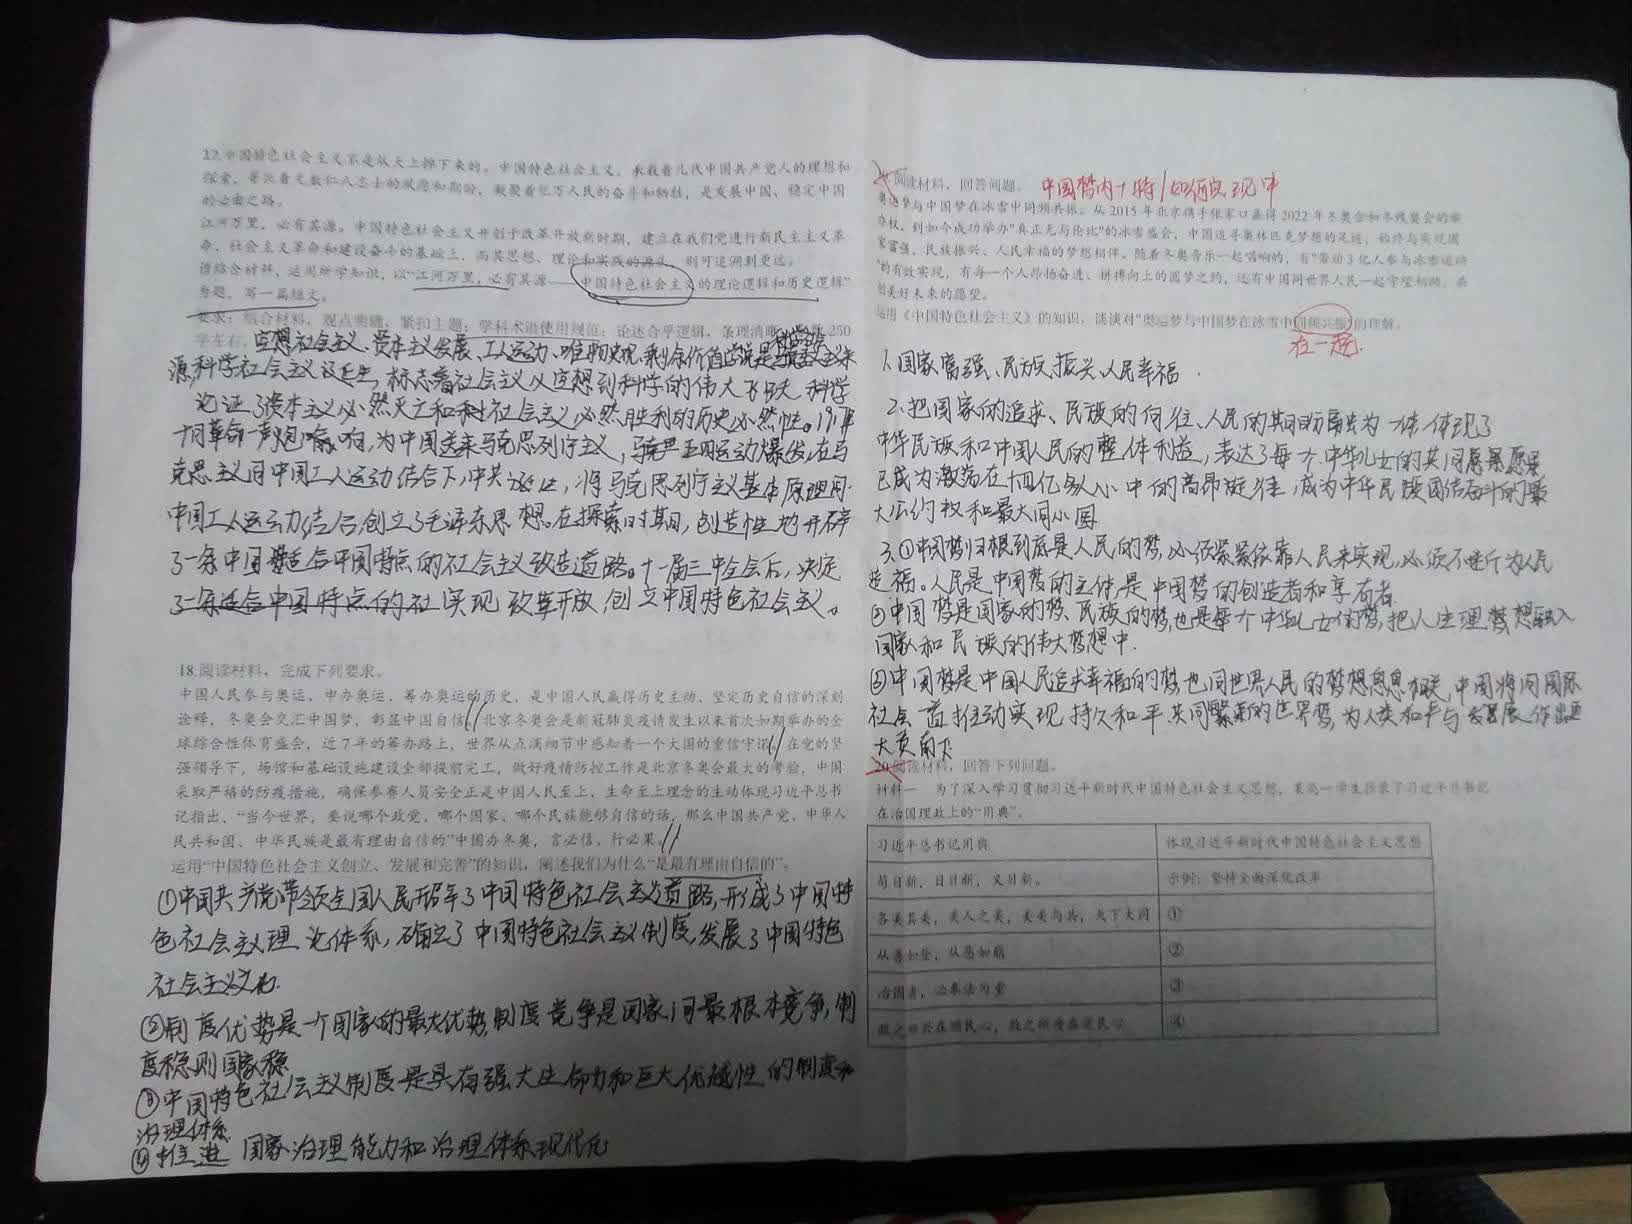 17.中国特色社会主义不是从天上掉下来的。中国特色社会主义，承载着几代中国共产党人的理想和
探索，寄托着无数仁人志士的夙愿和期盼，凝聚着亿万人民的奋斗和牺牲，是发展中国、稳定中国
的必由之路。
江河万里，必有其源。中国特色社会主义开创于改革开放新时期，建立在我们党进行新民主主义革
命、社会主义革命和建设奋斗的基础上，而其思想、理论和实践的源头，则可追溯到更远。
请结合材料，运用所学知识，以“江河万里，必有其源——中国特色社会主义的理论逻辑和历史逻辑”
为题，写一篇短文。
要求：结合材料，观点明确，紧扣主题；学科术语使用规范；论述合乎逻辑，条理清晰 250
字左右。
空想社会主义、资本主义发展、工人运动、唯物史观、剩余价值学说是科学社会主义来
源,科学社会主义诞生,标志着社会主义从空想到科学的伟大飞跃 科学
论证了资本主义必然灭亡和社会主义必然胜利的历史必然性。1917年
十月革命一声炮响,为中国送来马克思列宁主义,五四运动爆发,在马
克思主义同中国工人运动结合下,中共诞生,将马克思列宁主义基本原理同
中国工人运动结合,创立了毛泽东思想。在探索时期,创造性地开辟
了一条中国适合中国特点的社会主义改造道路。十一届三中全会后,决定
了一条适合中国特点的社 实现改革开放,创立中国特色社会主义。
18.阅读材料，完成下列要求。
中国人民参与奥运、申办奥运、筹办奥运的历史，是中国人民赢得历史主动、坚定历史自信的深刻
诠释，冬奥会交汇中国梦，彰显中国自信。北京冬奥会是新冠肺炎疫情发生以来首次如期举办的全
球综合性体育盛会，近7年的筹办路上，世界从点滴细节中感知着一个大国的重信守诺，在党的坚
强领导下，场馆和基础设施建设全部提前完工，做好疫情防控工作是北京冬奥会最大的考验，中国
采取严格的防疫措施，确保参赛人员安全正是中国人民至上、生命至上理念的主动体现习近平总书
记指出，“当今世界，要说哪个政党、哪个国家、哪个民族能够自信的话，那么中国共产党、中华人
民共和国、中华民族是最有理由自信的”中国办冬奥，言必信，行必果。
运用“中国特色社会主义创立、发展和完善”的知识，阐述我们为什么“是最有理由自信的”。
①中国共产党带领全国人民开辟了中国特色社会主义道路,形成了中国特
色社会主义理论体系,确立了中国特色社会主义制度,发展了中国特色
社会主义文化.
②制度优势是一个国家的最大优势,制度竞争是国家间最根本竞争,制
度稳则国家稳
③中国特色社会主义制度是具有强大生命力和巨大优越性的制度和
治理体系
④推进 国家治理能力和治理体系现代化
阅读材料，回答问题。 中国梦内+特/如何实现中
奥运梦与中国梦在冰雪中同频共振。从2015年北京携手张家口赢得2022年冬奥会和冬残奥会的举
办权，到如今成功举办“真正无与伦比”的冰雪盛会，中国追寻奥林匹克梦想的足迹，始终与实现国
家富强、民族振兴、人民幸福的梦想相伴。随着冬奥音乐一起唱响的，有“带动3亿人参与冰雪运动
”的有效实现，有每一个人昂扬奋进、拼搏向上的圆梦之约，还有中国同世界人民一起守望相助、共
创美好未来的愿望。
运用《中国特色社会主义》的知识，谈谈对“奥运梦与中国梦在冰雪中同频共振”的理解。
在一起.
1.国家富强、民族振兴、人民幸福.
2.把国家的追求、民族的向往、人民的期盼融为一体,体现了
中华民族和中国人民的整体利益,表达了每个中华儿女的共同愿景,
已成为激荡在十四亿多人心中的高昂旋律,成为中华民族团结奋斗的最
大公约数和最大同心圆
3.①中国梦归根到底是人民的梦,必须紧紧依靠人民来实现,必须不断为人民
造福。人民是中国梦的主体,是中国梦的创造者和享有者.
②中国梦是国家的梦、民族的梦,也是每个中华儿女的梦,把人生理想融入
国家和民族的伟大梦想中.
③中国梦是中国人民追求幸福的梦,也同世界人民的梦想息息相关,中国将同国际
社会一道推动实现持久和平共同繁荣的世界梦,为人类和平与发展作出更
大贡献
20.阅读材料，回答下列问题。
材料一 为了深入学习贯彻习近平新时代中国特色社会主义思想，某高一学生摘录了习近平总书记
在治国理政上的“用典”。
习近平总书记用典 体现习近平新时代中国特色社会主义思想
苟日新，日日新，又日新。 示例：坚持全面深化改革
各美其美，美人之美，美美与共，天下大同 ①
从善如登，从恶如崩 ②
治国者，必奉法为重 ③
政之所兴在顺民心，政之所废在逆民心 ④